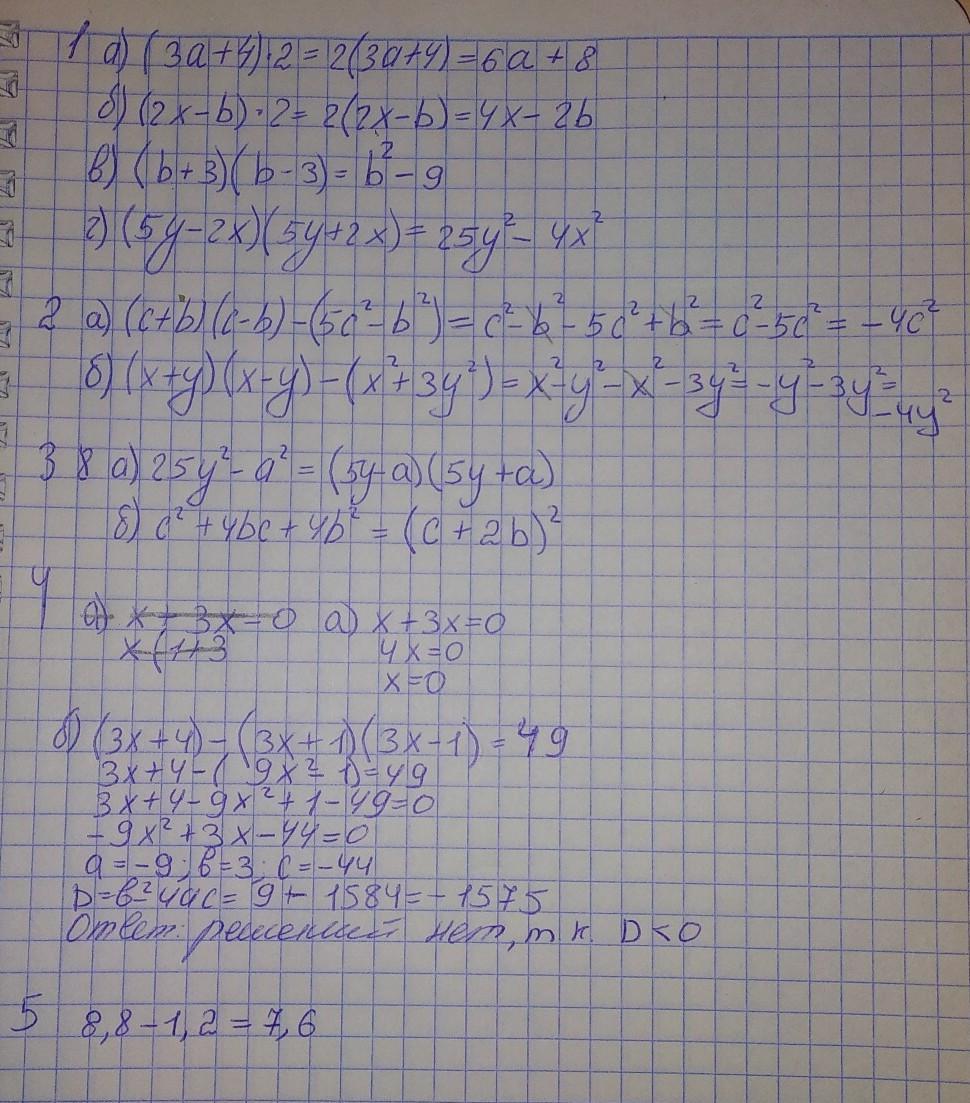 1 а) (3a+4)·2=2(3a+4)=6a+8
б) (2x-b)·2=2(2x-b)=4x-2b
в) (b+3)(b-3)=b²-9
г) (5y-2x)(5y+2x)=25y²-4x²
2 а) (c+b)(c-b)-(5c²-b²)=c²-b²-5c²+b²=c²-5c²=-4c²
б) (x+y)(x-y)-(x²+3y²)=x²-y²-x²-3y²=-y²-3y²=
-4y²
3 8 а) 25y²-a²=(5y-a)(5y+a)
б) c²+4bc+4b²=(c+2b)²
4
а) x+3x=0 а) x+3x=0
x(1+3 4x=0
x=0
б) (3x+4)-(3x+1)(3x-1)=49
3x+4-(9x²-1)=49
3x+4-9x²+1-49=0
-9x²+3x-44=0
a=-9; b=3; c=-44
D=b²-4ac=9-1584=-1575
Ответ: решений нет, т к. D<0
5 8,8-1,2=7,6